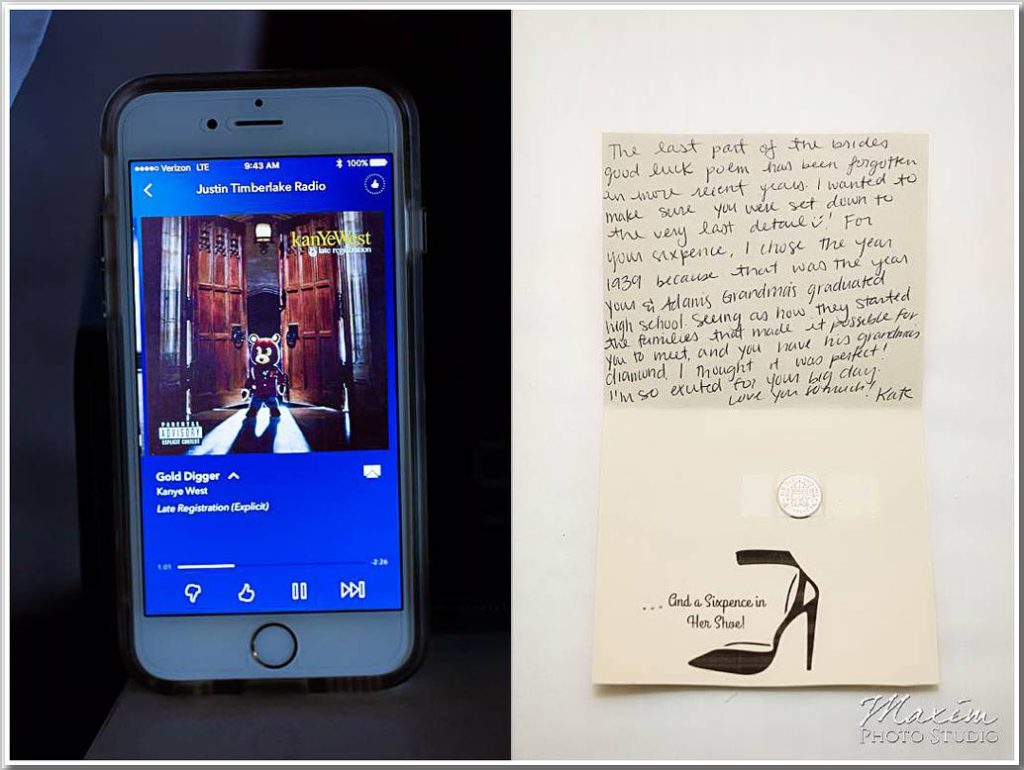 Verizon LTE
9:43 AM
100%
Justin Timberlake Radio
kanYeWest
late registration
PARENTAL
ADVISORY
EXPLICIT CONTENT
Gold Digger
Kanye West
Late Registration (Explicit)
1:01
-2:26
The last part of the brides
good luck poem has been forgotten
in more recent years. I wanted to
make sure you were set down to
the very last detail! For
your sixpence, I chose the year
1939 because that was the year
your & Adams Grandma's graduated
high school. Seeing as how they started
the families that made it possible for
you to meet, and you have his grandmas
diamond, I thought it was perfect!
I'm so excited for your big day.
Love you so much! Kate
... And a Sixpence in
Her Shoe!
Maxim
PHOTO STUDIO